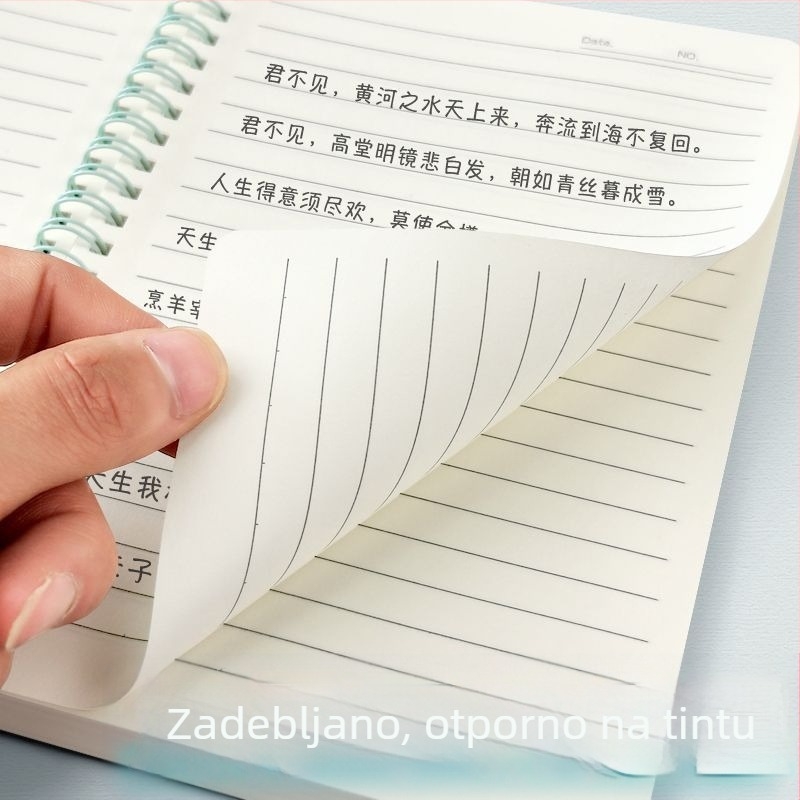 Date.
NO.
君不见，黄河之水天上来，奔流到海不复回。
君不见，高堂明镜悲白发，朝如青丝暮成雪。
人生得意须尽欢，莫使金樽
天生
烹羊宰
天生我
Zadebljano, otporno na tintu